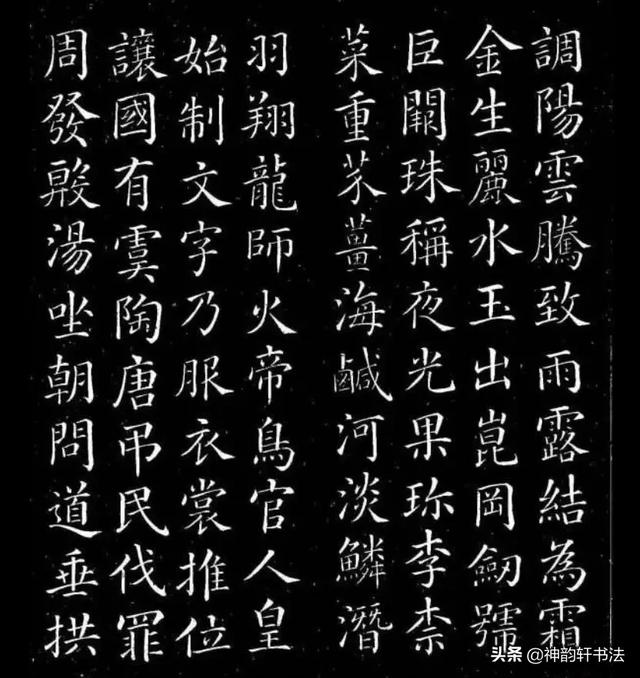 調陽雲騰致雨露結為霜
金生麗水玉出崑岡劒號
巨闕珠稱夜光果珎李柰
菜重芥薑海鹹河淡鱗潛
羽翔龍師火帝鳥官人皇
始制文字乃服衣裳推位
讓國有虞陶唐吊民伐罪
周發殷湯坐朝問道垂拱
头条 @神韵轩书法